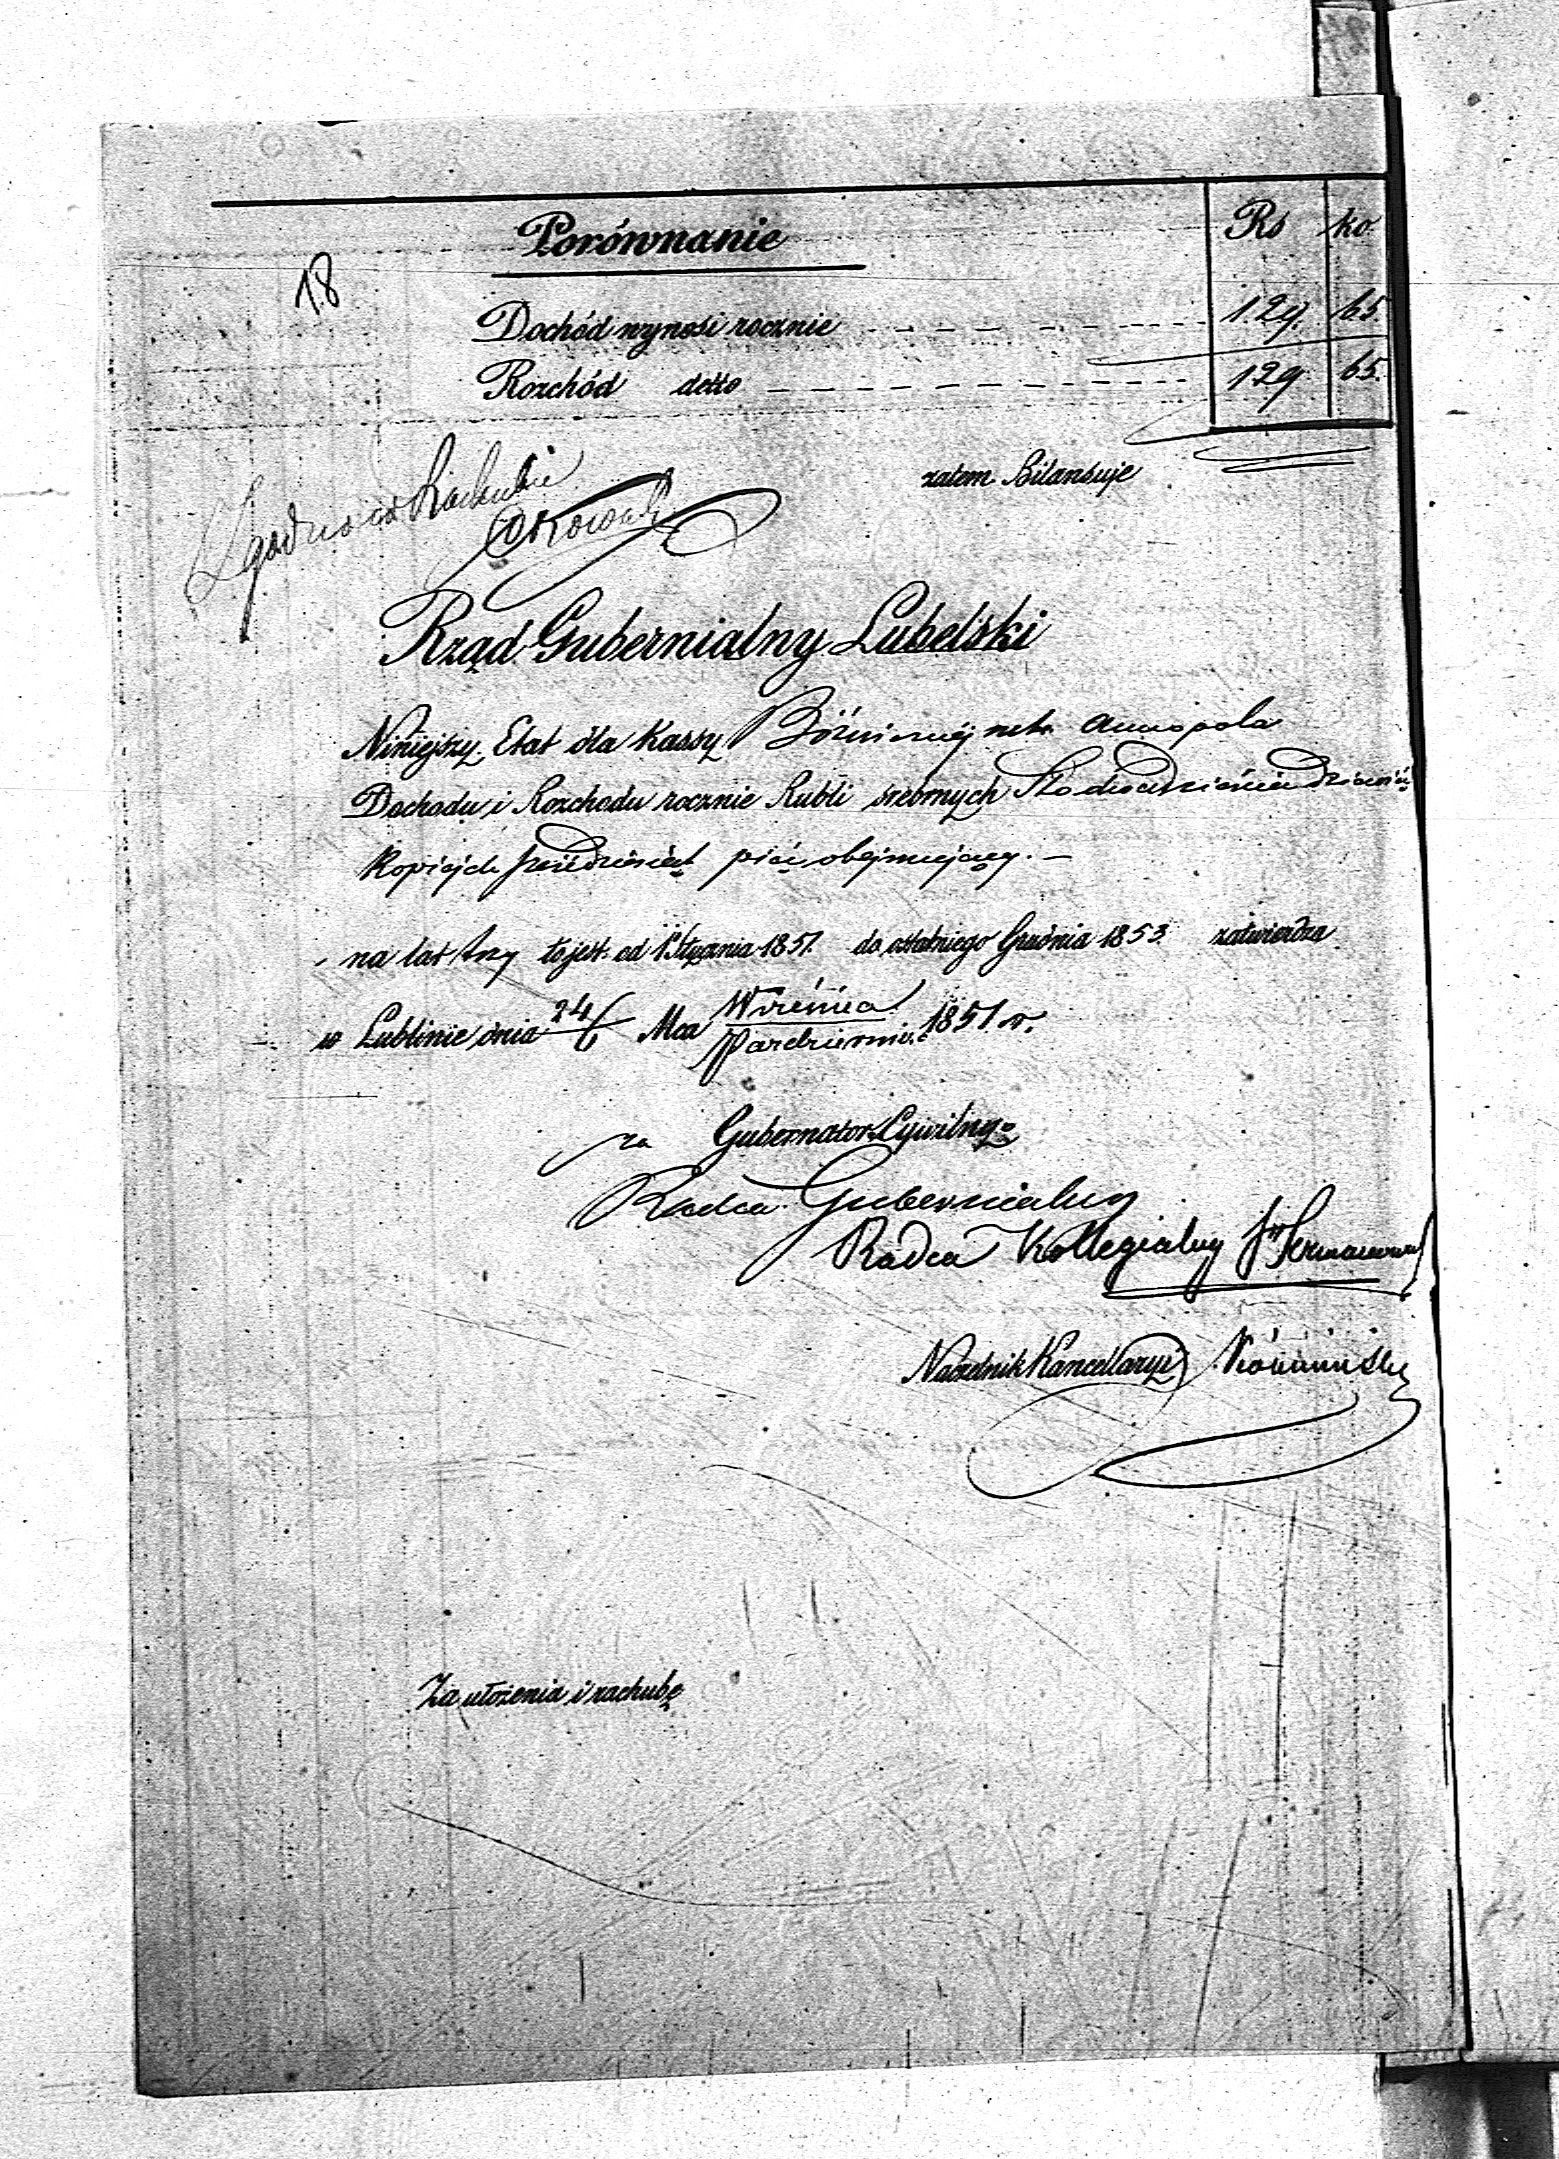 Porównanie
Rs ko
18
Dochód wynosi rocznie 129. 65
Rozchód detto 129. 65.
zatem Bilansuje
Zgodno co do Rachubie
Rząd Gubernialny Lubelski
Niniejszy Etat dla Kassy Bóżniczej mta Annopola
Dochodu i Rozchodu rocznie Rubli srebrnych Sto dwadzieścia dziewięć
Kopiejek sześćdziesiąt pięć obejmujący. —
na lat trzy to jest od 1 Stycznia 1851. do ostatniego Grudnia 1853 zatwierdza
w Lublinie dnia 24/6 Mca Września/Pazdziernik 1851 r.
za Gubernatora Cywilnego
Radca Gubernialny
Radca Kollegialny
Naczelnik Kancellaryi
Za ułożenia i rachubę